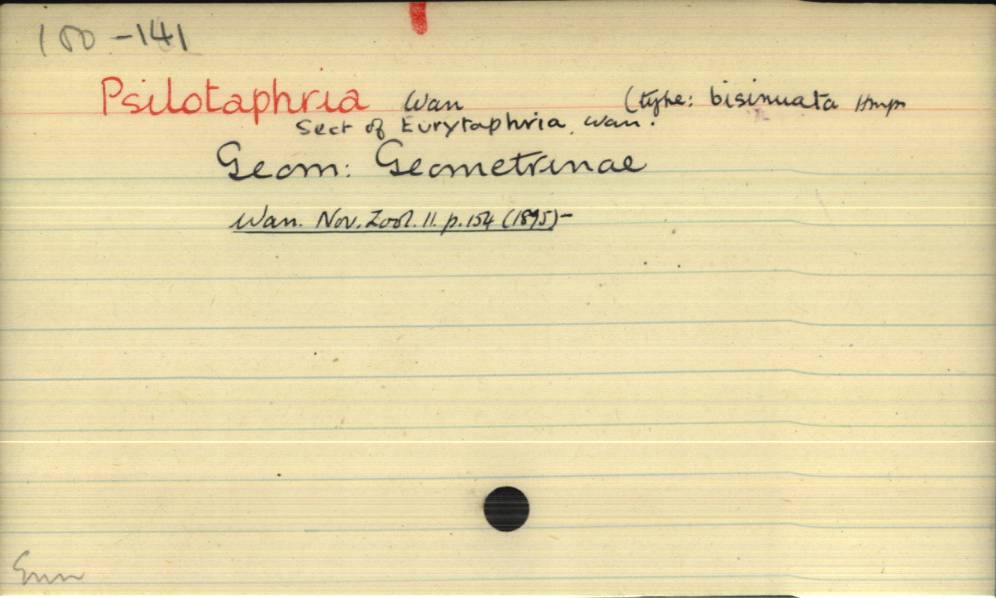 100-141
Psilotaphria Warr (type: bisinuata Hmps
Sect of Eurytaphria Warr.
Geom: Geometrinae
Warr. Nov. Zool. 11. p.154 (1895)-